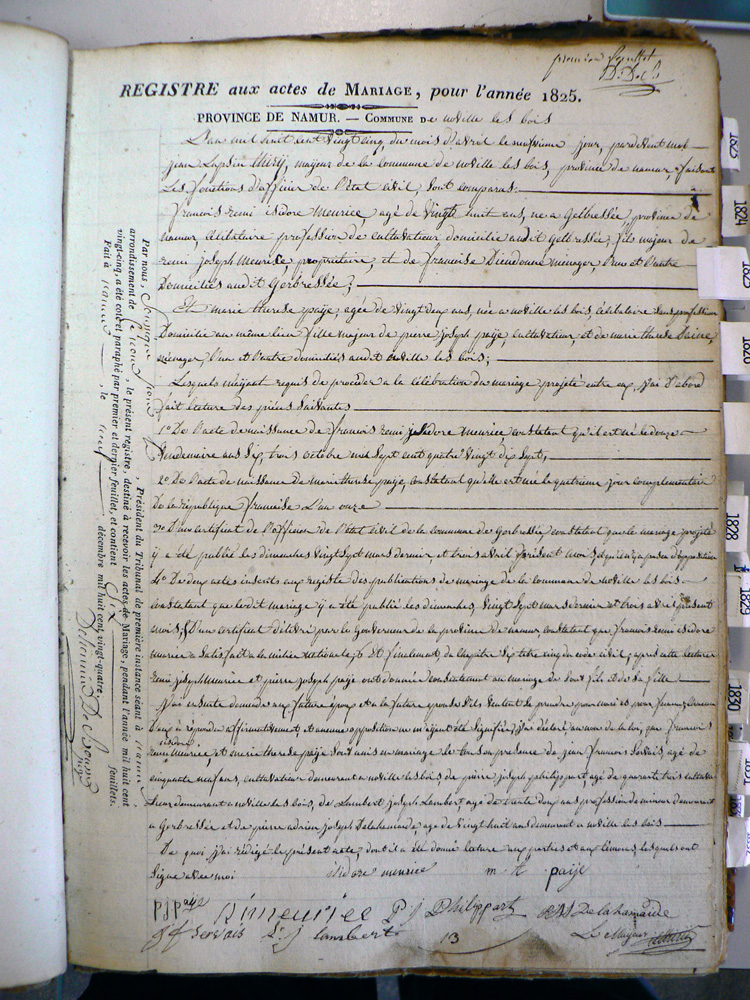 premier feuillet
REGISTRE aux actes de MARIAGE, pour l'année 1825.
PROVINCE DE NAMUR. — COMMUNE De noville les bois
L'an mil huit cent vingt cinq, du mois d'avril le jour, pardevant moi
jean maire de la commune de noville les bois, province de namur, faisant
Les fonctions d'officier de l'état civil, sont comparus:
françois remi isidore Meurice agé de vingt huit ans, né a Gelbressée, province de
namur, célibataire profession de cultivateur, domicilié audit Gelbressée, fils majeur de
remi joseph Meurice, propriétaire, et de françoise Dieudonné ménager, l'un et l'autre
Domiciliés audit Gerbressée;
Et marie therese paije, agée de vingt deux ans, née a noville les bois, célibataire sans profession
Domiciliée au même lieu fille majeur de pierre joseph paije, cultivateur, et de marie therese
ménager, l'un et l'autre domiciliés audit noville les bois;
Lesquels m'ayant requis de procéder a la célébration du mariage projeté entre eux, j'ai d'abord
fait lecture des pièces suivantes
1º De l'acte de naissance de françois remi isidore meurice, constatant qu'il est né le douze
vendemiaire ans six, trois octobre mil sept cent quatre vingt dix sept,
2º De l'acte de naissance de marie therese paije, constatant qu'elle est née le quatrieme jour complementaire
De la république française L'an onze
3º D'un certificat de l'officier de l'état civil de la commune de Gerbressée, constatant que le mariage projeté
y a été publié les dimanches vingt sept mars dernier, et trois avril présent mois et qu'il n'y a pas eu d'opposition
4º De deux actes inscrits aux registre des publications de mariage de la commune de noville les bois
constatant que ledit mariage y a été publié les dimanches, vingt sept mars dernier et trois avril présent
mois, 5º D'un certificat délivré par le Gouverneur de la province de namur, constatant que françois remi isidore
meurice a satisfait a la milice nationale, 6º Et finalement, du chapitre six titre cinq du code civil, après cette lecture
remi joseph Meurice et pierre joseph paije ont donné consentement au mariage de leur fils et de sa fille
J'ai ensuite demandé aux future époux et a la future épouse s'ils veulent se prendre pour mari et pour femme, chacun
D'eux a répondu affirmativement et aucune opposition ne m'ayant été signifiée, j'ai déclaré au nom de la loi, que françois
isidore
remi meurice, et marie therese paije sont unis en mariage le tout en presence de jean françois servais, agé de
cinquante neuf ans, cultivateur demeurant a noville les bois de pierre joseph philippart, agé de quarante trois
demeurant a noville les bois, de Lambert joseph Lambert, agé de trente deux ans profession de demeurant
a Gerbressée et de pierre adrien joseph Delahamaide, age de vingt huit ans demeurant a noville les bois
De quoi j'ai rédigé le présent acte, dont il a été donné lecture aux parties et aux témoins, lesquels ont
signé avec moi isidore meurice m t paije
P J Paije R j meurice P j Philippart P A J Delahamaide
J f servais L j lambert 13 Le Mayeur
Par nous, Président du Tribunal de première instance séant à namur,
arrondissement de namur, le présent registre, destiné à recevoir les actes de Mariage, pendant l'année mil huit cent
vingt-cinq, a été coté et paraphé par premier et dernier feuillet, et contient feuillets.
Fait à namur, le décembre mil huit cent vingt-quatre.
1823
1824
1828
1829
1830
1831